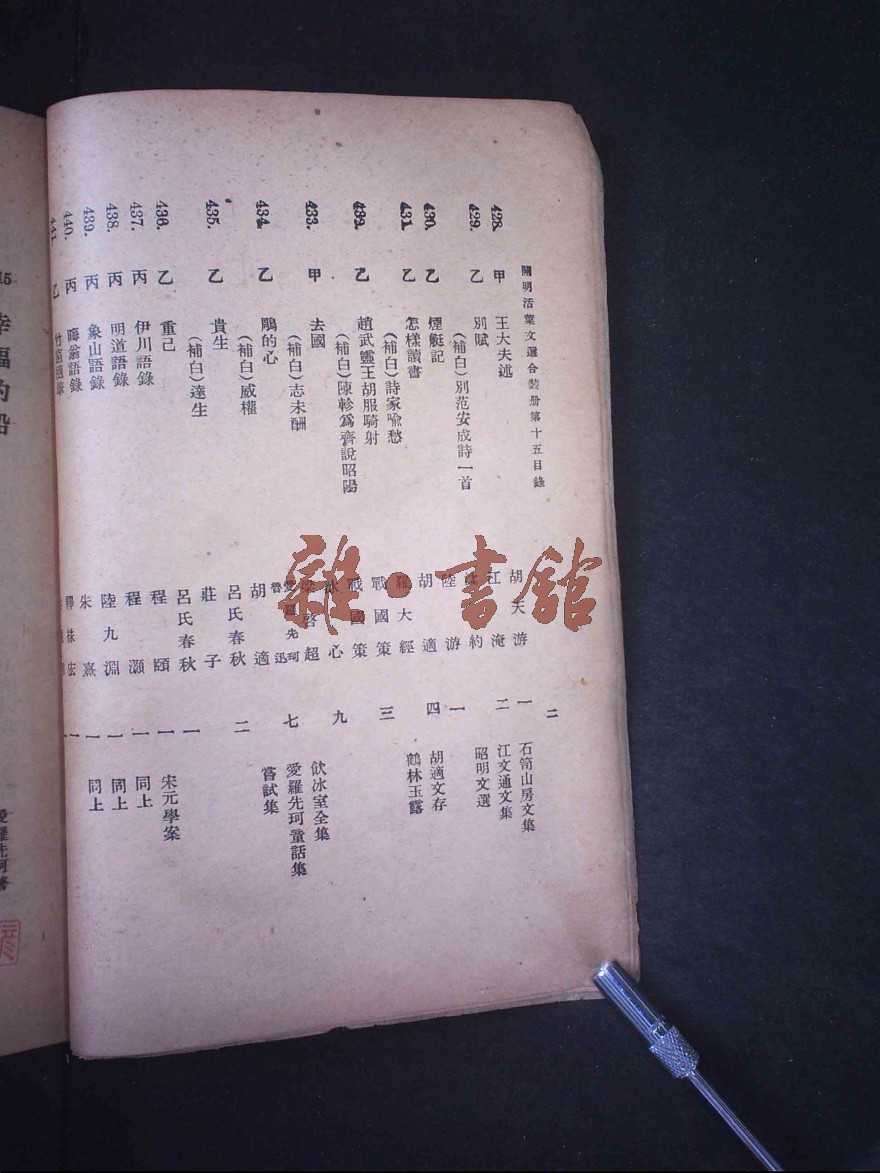 開明活葉文選合裝册第十五目錄 二
428. 甲 王大夫述 胡天游 一 石笥山房文集
429. 乙 別賦 江淹 二 江文通文集
(補白)別范安成詩一首 沈約 昭明文選
430. 乙 煙艇記 陸游 一
431. 乙 怎樣讀書 胡適 四 胡適文存
(補白)詩家喻愁 羅大經 鶴林玉露
432. 乙 趙武靈王胡服騎射 戰國策 三
(補白)陳軫爲齊說昭陽 戰國策
433. 甲 去國 冰心 九
(補白)志未酬 梁啓超 飲冰室全集
434. 乙 鵰的心 愛羅先珂 魯迅 七 愛羅先珂童話集
(補白)威權 胡適 嘗試集
435. 乙 貴生 呂氏春秋 二
(補白)達生 莊子
436. 乙 重己 呂氏春秋 一
437. 丙 伊川語錄 程頤 一 宋元學案
438. 丙 明道語錄 程顥 一 同上
439. 丙 象山語錄 陸九淵 一 同上
440. 丙 晦翁語錄 朱熹 一 同上
441. 乙 竹窗隨筆 釋袾宏 一
15 幸福的船
愛羅先珂著
雜·書館